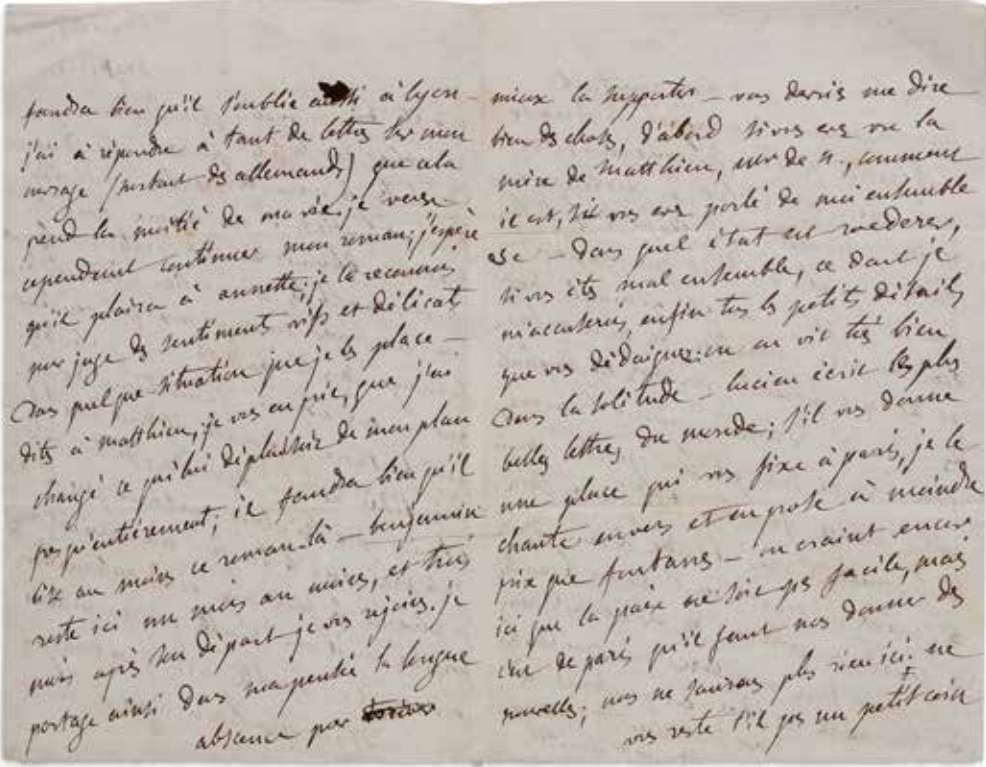 faudra bien qu'il s'oublie aussi à lyon –
j'ai à répondre à tant de lettres sur mon
ouvrage (surtout des allemands) que cela
prend la moitié de ma vie, je veux
cependant continuer mon roman; j'espère
qu'il plaira à annette, je la reconnois
pour juge des sentiments vifs et délicats
dans quelque situation que je les place –
dites à matthieu, je vous en prie, que j'ai
changé ce qui lui déplaisoit de mon plan
presqu'entièrement, il faudra bien qu'il
lise au moins ce roman-là – benjamin
reste ici un mois au moins, et trois
mois après son départ je vous rejoins. je
partage ainsi dans ma pensée la longue
absence pour
mieux la supporter – vous devriez me dire
bien des choses, d'abord si vous avez vu la
mère de Matthieu, de n., comment
il est, s'il vous ont parlé de moi ensemble
– dans quel état est
si vous êtes mal ensemble, ce dont je
m'accuserois, enfin tous les petits détails
que vous dédaignez: on en vit très bien
dans la solitude – lucien écrit les plus
belles lettres du monde; s'il vous donne
une place qui vous fixe à paris, je le
chante en vers et en prose à moindre
prix que fontanes – on craint encore
ici que la paix ne soit pas facile, mais
c'est de paris qu'il faut nous donner des
nouvelles; nous ne saurons plus rien ici. ne
vous reste t'il pas un petit coin